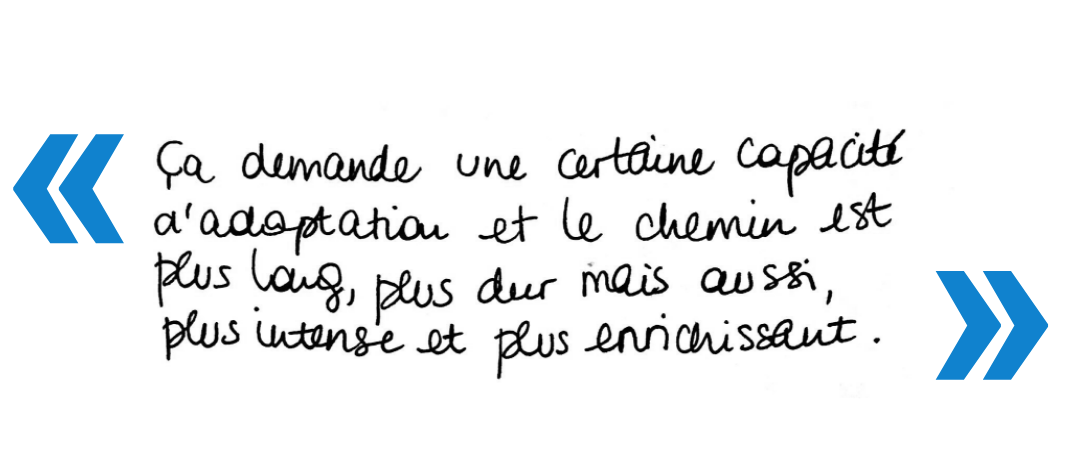 Ça demande une certaine capacité
d'adaptation et le chemin est
plus long, plus dur mais aussi,
plus intense et plus enrichissant.